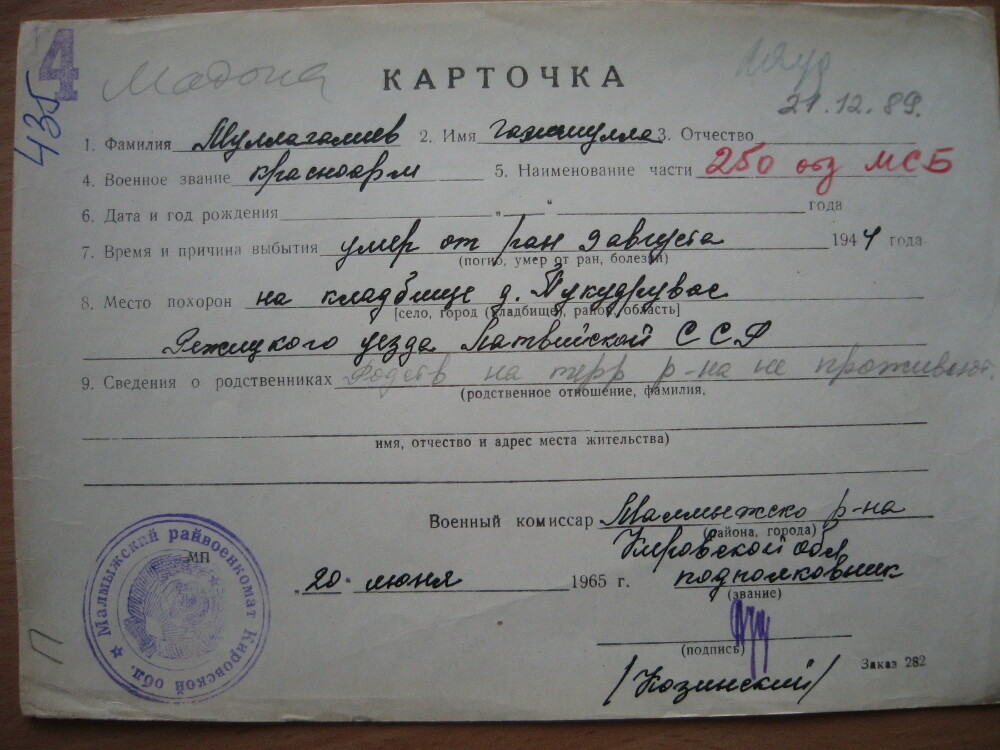 4
435
Мадона
КАРТОЧКА
21.12.89.
1. Фамилия Муллагалиев 2. Имя Газизулла 3. Отчество
4. Военное звание красноарм 5. Наименование части 250 отд МСБ
6. Дата и год рождения „ “ года
7. Время и причина выбытия умер от ран 9 августа 1944 года
(погиб, умер от ран, болезни)
8. Место похорон на кладбище д. Пукудрувас
[село, город (кладбище), район, область]
Режицкого уезда Латвийской ССР
9. Сведения о родственниках Родств на терр р-на не проживают.
(родственное отношение, фамилия,
имя, отчество и адрес места жительства)
Военный комиссар Малмыжско р-на
(района, города)
Кировской обл
МП
„20“ июня 1965 г. подполковник
(звание)
(подпись)
Заказ 282
/Козинский/
Малмыжский райвоенкомат Кировской обл.
П